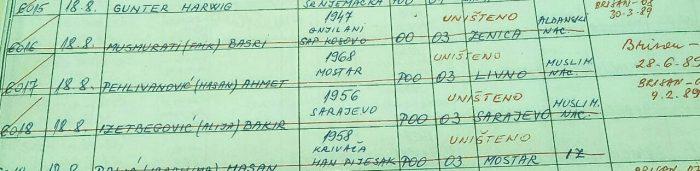 8015 18.8. GUNTER HARWIG SR NJEMAČKA POO 03 BRISAN-03
30-3-89
1947
GNJILANI
SAP KOSOVO
UNIŠTENO
ALBANSKI
NAC.
8016 18.8. MUSMURATI (FAIK) BASRI 00 03 ZENICA
1968
MOSTAR
UNIŠTENO
MUSLIM.
NAC.
28-6-89
8017 18.8. PEHLIVANOVIĆ (HASAN) AHMET POO 03 LIVNO
1956
SARAJEVO
UNIŠTENO
MUSLIM.
NAC.
BRISAN-0
9.2.89
8018 18.8. IZETBEGOVIĆ (ALIJA) BAKIR POO 03 SARAJEVO
1958
KRIVAČA
HAN PIJESAK
UNIŠTENO
HASAN POO 03 MOSTAR